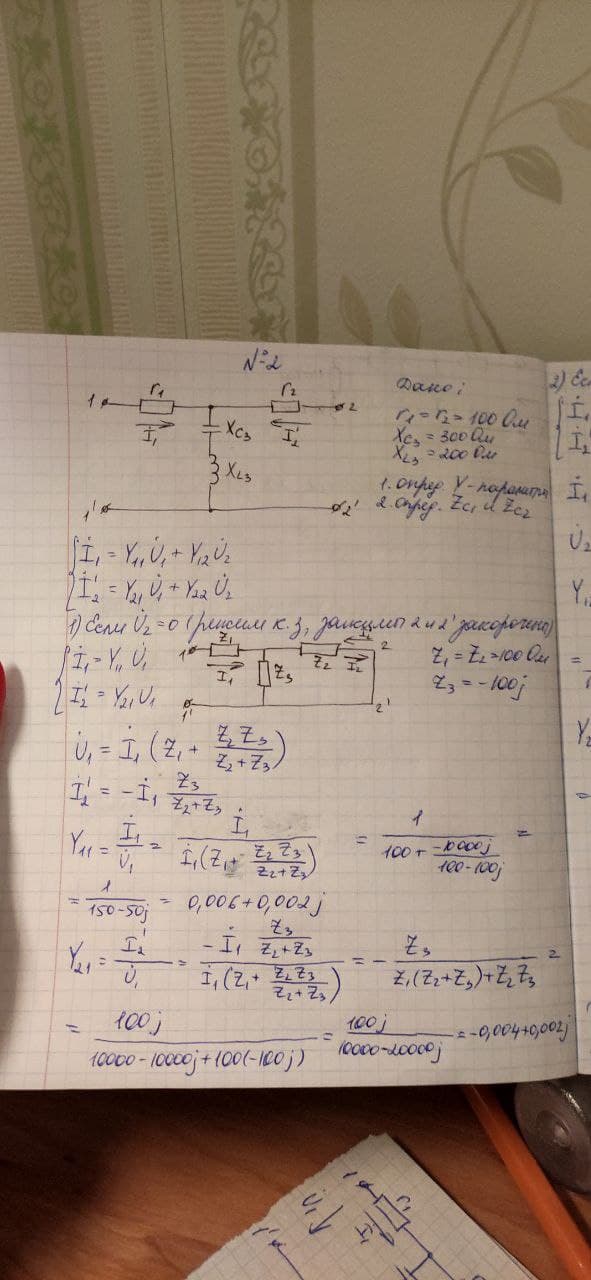 №2
1 r₁ r₂ 2
İ₁ X_C3 İ₂'
X_L3
1' 2'
Дано:
r₁ = r₂ = 100 Ом
X_C3 = 300 Ом
X_L3 = 200 Ом
1. опред. Y-параметры
2. опред. Z_C1 и Z_C2
İ₁ = Y₁₁ U̇₁ + Y₁₂ U̇₂
İ₂' = Y₂₁ U̇₁ + Y₂₂ U̇₂
1) Если U̇₂ = 0 (режим к.з, зажимы 2 и 2' закорочены)
İ₁ = Y₁₁ U̇₁
İ₂' = Y₂₁ U₁
1 Z₁ Z₂ İ₂' 2
İ₁ Z₃ İ₂
1' 2'
Z₁ = Z₂ = 100 Ом
Z₃ = -100j
U̇₁ = İ₁ (Z₁ + Z₂ Z₃ / (Z₂ + Z₃))
İ₂' = -İ₁ Z₃ / (Z₂ + Z₃)
Y₁₁ = İ₁ / U̇₁ = İ₁ / (İ₁ (Z₁ + Z₂ Z₃ / (Z₂ + Z₃))) = 1 / (100 + -10000j / (100 - 100j)) =
= 1 / (150 - 50j) = 0,006 + 0,002j
Y₂₁ = İ₂' / U̇₁ = -İ₁ Z₃ / (Z₂ + Z₃) / (İ₁ (Z₁ + Z₂ Z₃ / (Z₂ + Z₃))) = - Z₃ / (Z₁ (Z₂ + Z₃) + Z₂ Z₃) =
= 100j / (10000 - 10000j + 100(-100j)) = 100j / (10000 - 20000j) = -0,004 + 0,002j
2) Ес
İ₁
İ₂'
İ₁
U̇₂